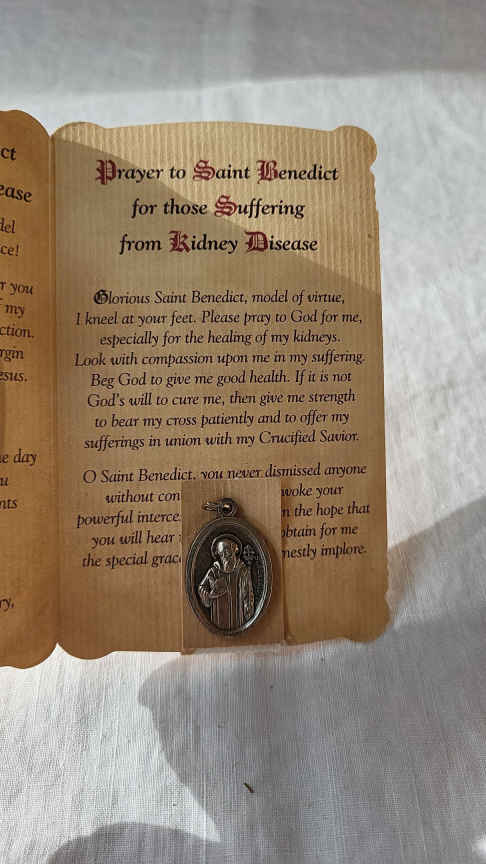 ct
ease
del
ce!
r you
my
ction.
rgin
esus.
e day
u
nts
ry,
Prayer to Saint Benedict
for those Suffering
from Kidney Disease
Glorious Saint Benedict, model of virtue,
I kneel at your feet. Please pray to God for me,
especially for the healing of my kidneys.
Look with compassion upon me in my suffering.
Beg God to give me good health. If it is not
God's will to cure me, then give me strength
to bear my cross patiently and to offer my
sufferings in union with my Crucified Savior.
O Saint Benedict, you never dismissed anyone
without con voke your
powerful interce n the hope that
you will hear obtain for me
the special grac nestly implore.